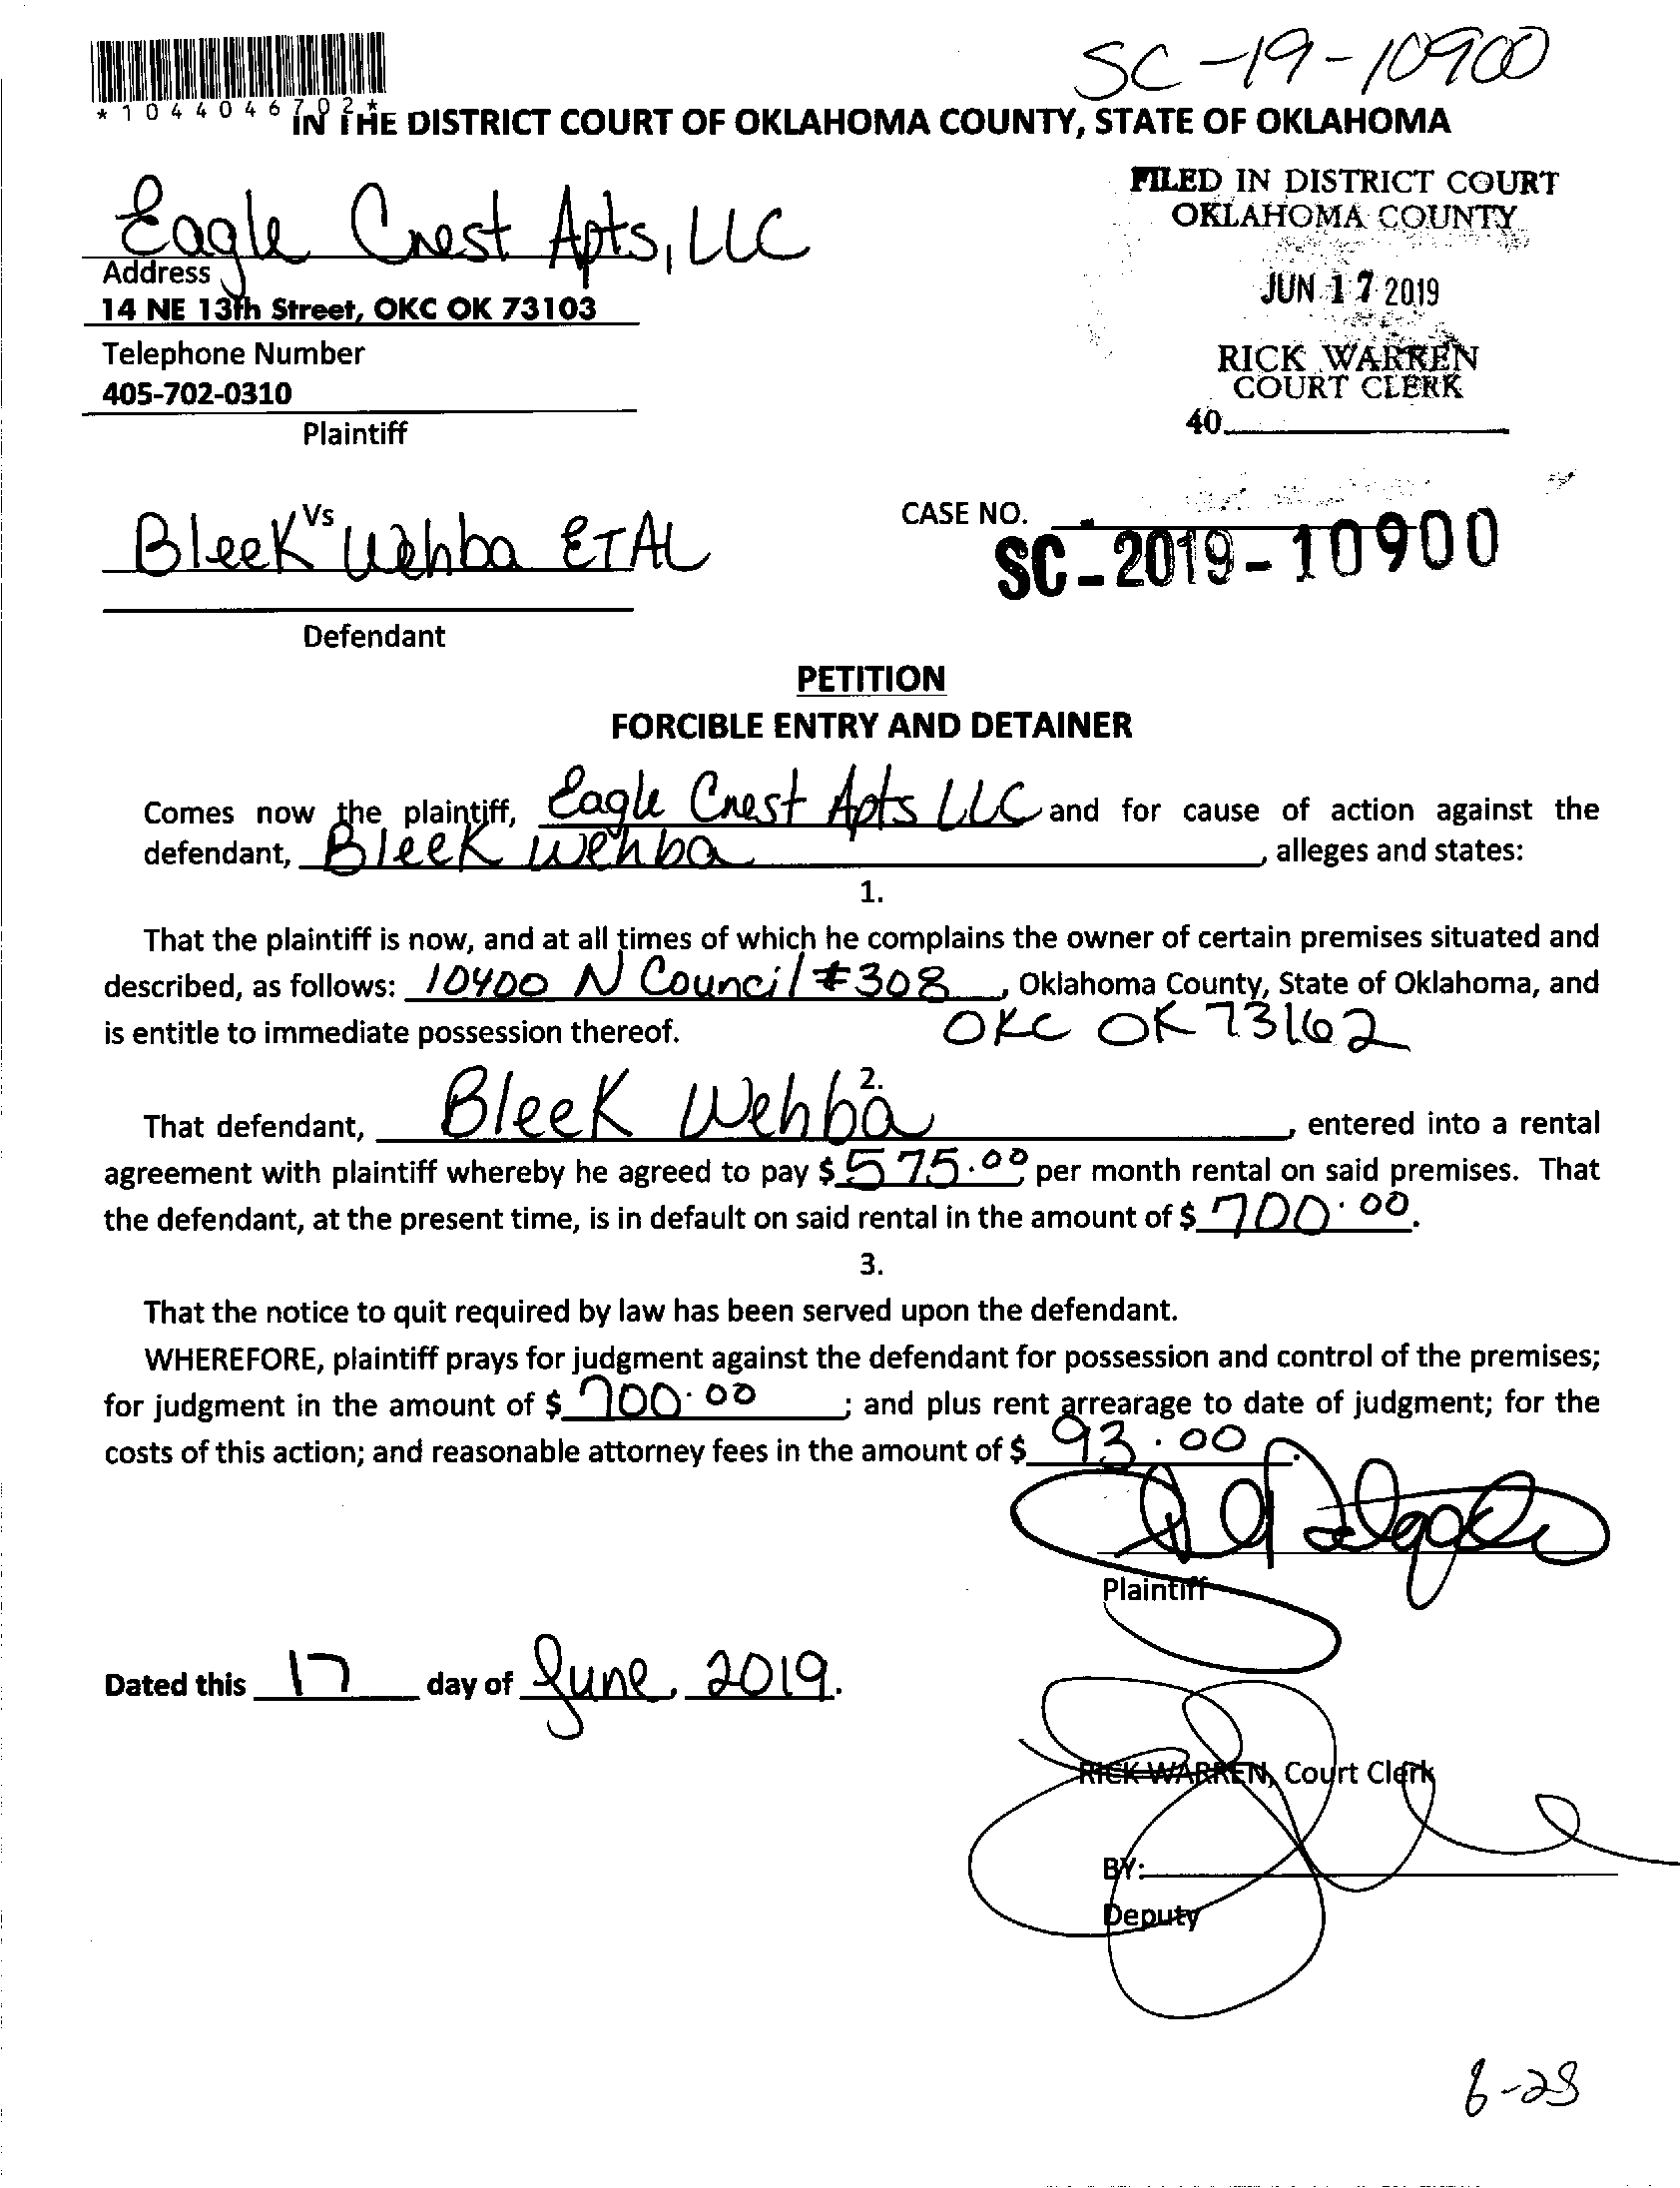 SC-19-10900
*1044046702*
IN THE DISTRICT COURT OF OKLAHOMA COUNTY, STATE OF OKLAHOMA
FILED IN DISTRICT COURT
OKLAHOMA COUNTY
JUN 17 2019
RICK WARREN
COURT CLERK
40
Eagle Crest Apts, LLC
Address
14 NE 13th Street, OKC OK 73103
Telephone Number
405-702-0310
Plaintiff
Vs
Bleek Wehba ETAL
Defendant
CASE NO.
SC-2019-10900
PETITION
FORCIBLE ENTRY AND DETAINER
Comes now the plaintiff, Eagle Crest Apts LLC and for cause of action against the
defendant, Bleek Wehba, alleges and states:
1.
That the plaintiff is now, and at all times of which he complains the owner of certain premises situated and
described, as follows: 10400 N Council #308, Oklahoma County, State of Oklahoma, and
is entitle to immediate possession thereof. OKC OK 73162
2.
That defendant, Bleek Wehba, entered into a rental
agreement with plaintiff whereby he agreed to pay $575.00 per month rental on said premises. That
the defendant, at the present time, is in default on said rental in the amount of $700.00.
3.
That the notice to quit required by law has been served upon the defendant.
WHEREFORE, plaintiff prays for judgment against the defendant for possession and control of the premises;
for judgment in the amount of $700.00; and plus rent arrearage to date of judgment; for the
costs of this action; and reasonable attorney fees in the amount of $93.00.
Plaintiff
Dated this 17 day of June, 2019.
RICK WARREN, Court Clerk
BY:
Deputy
6-28